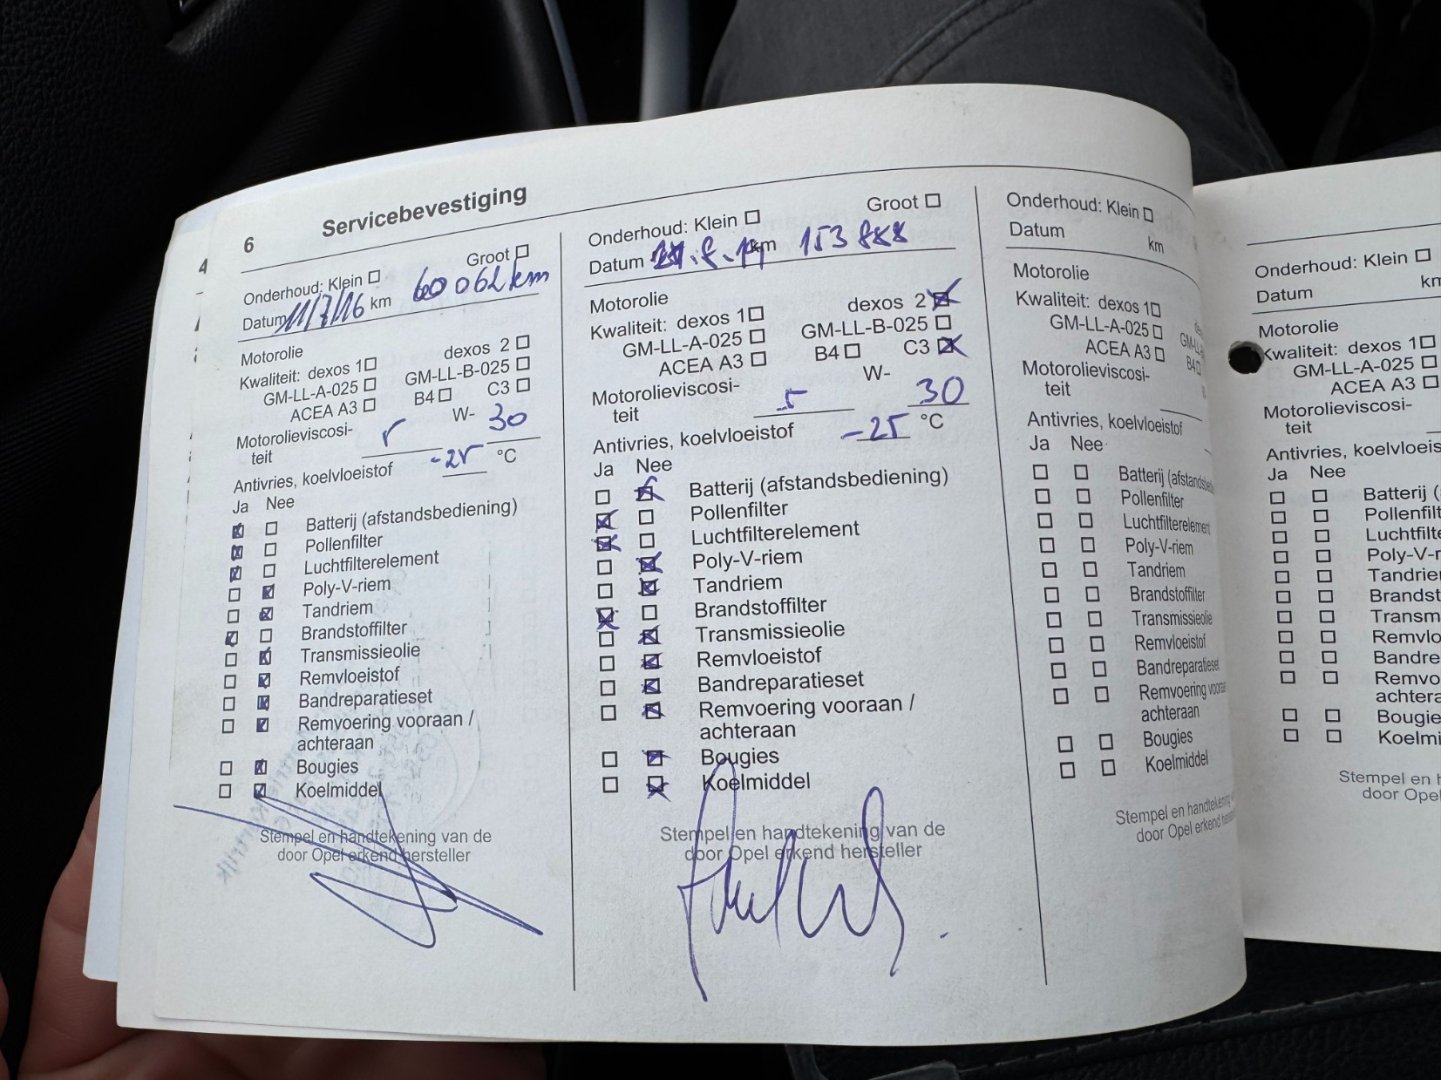 6 Servicebevestiging
Onderhoud: Klein Groot
Datum 11/7/16 km 60 062 km
Motorolie
Kwaliteit: dexos 1 dexos 2
GM-LL-A-025 GM-LL-B-025
ACEA A3 B4 C3
Motorolieviscosi-
teit 5 W- 30
Antivries, koelvloeistof -25 °C
Ja Nee
Batterij (afstandsbediening)
Pollenfilter
Luchtfilterelement
Poly-V-riem
Tandriem
Brandstoffilter
Transmissieolie
Remvloeistof
Bandreparatieset
Remvoering vooraan /
achteraan
Bougies
Koelmiddel
Stempel en handtekening van de
door Opel erkend hersteller
Onderhoud: Klein Groot
Datum km 153 888
Motorolie
Kwaliteit: dexos 1 dexos 2
GM-LL-A-025 GM-LL-B-025
ACEA A3 B4 C3
Motorolieviscosi-
teit 5 W- 30
Antivries, koelvloeistof -25 °C
Ja Nee
Batterij (afstandsbediening)
Pollenfilter
Luchtfilterelement
Poly-V-riem
Tandriem
Brandstoffilter
Transmissieolie
Remvloeistof
Bandreparatieset
Remvoering vooraan /
achteraan
Bougies
Koelmiddel
Stempel en handtekening van de
door Opel erkend hersteller
Onderhoud: Klein
Datum km
Motorolie
Kwaliteit: dexos 1
GM-LL-A-025 GM-LL
ACEA A3 B4
Motorolieviscosi-
teit
Antivries, koelvloeistof
Ja Nee
Batterij (afstandsbe
Pollenfilter
Luchtfilterelement
Poly-V-riem
Tandriem
Brandstoffilter
Transmissieolie
Remvloeistof
Bandreparatieset
Remvoering vooraa
achteraan
Bougies
Koelmiddel
Stempel en handtekening
door Opel erkend herste
Onderhoud: Klein
Datum km
Motorolie
Kwaliteit: dexos 1
GM-LL-A-025
ACEA A3
Motorolieviscosi-
teit
Antivries, koelvloeis
Ja Nee
Batterij (
Pollenfilt
Luchtfilte
Poly-V-r
Tandrie
Brandst
Transm
Remvlo
Bandre
Remvo
achtera
Bougie
Koelmi
Stempel en h
door Opel